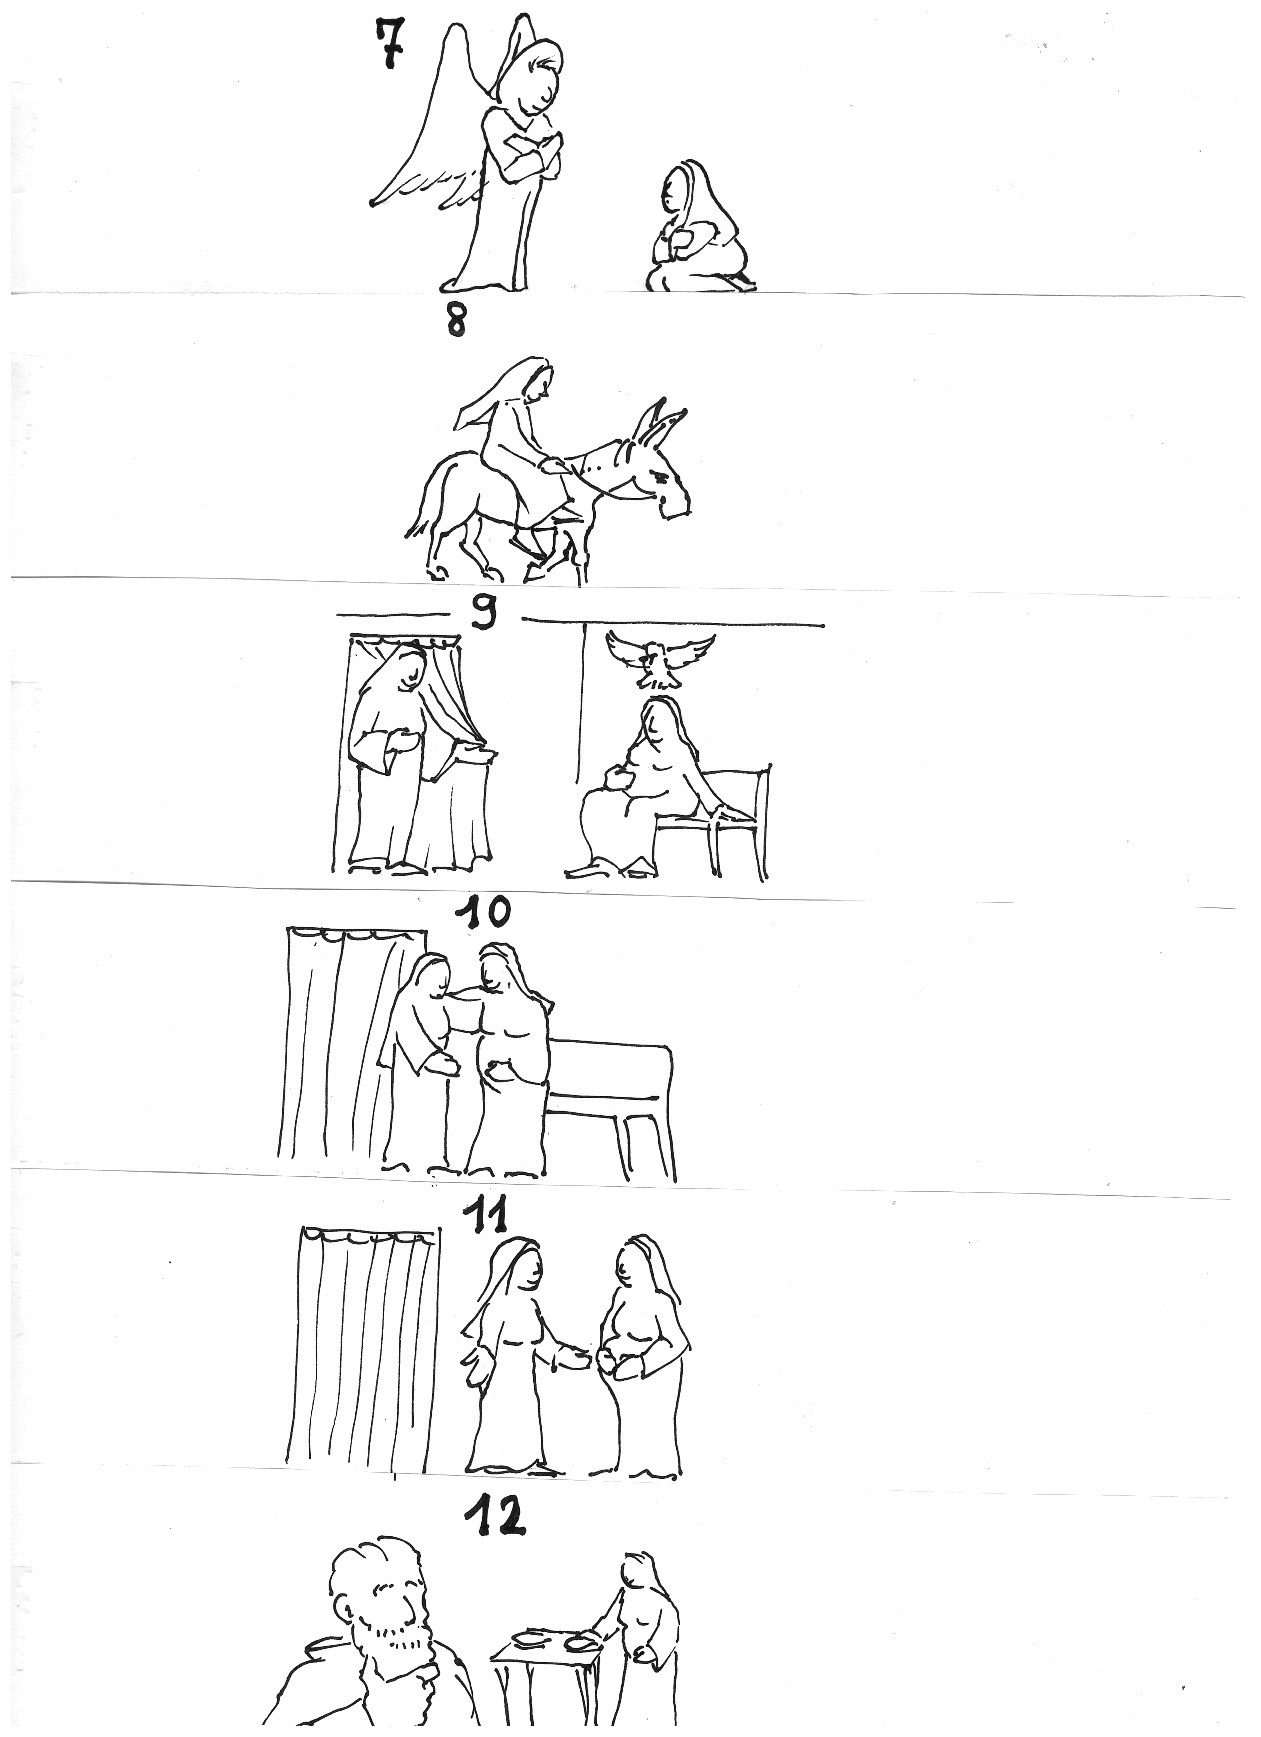 7
8
9
10
11
12